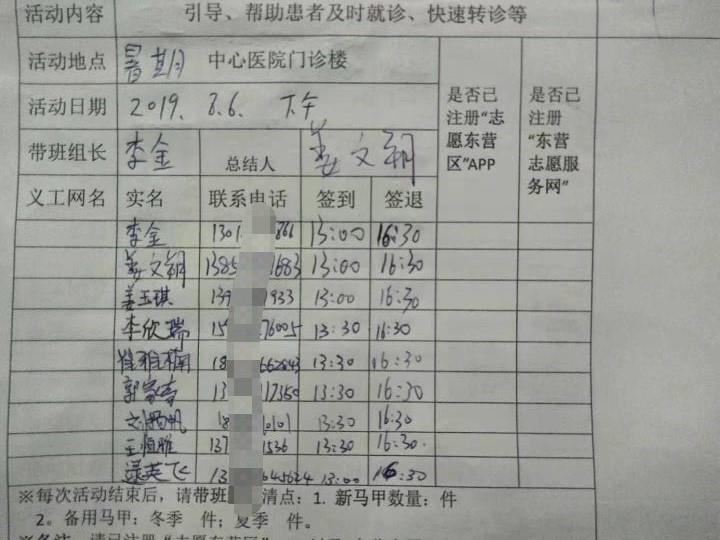 活动内容 引导、帮助患者及时就诊、快速转诊等
活动地点 暑期 中心医院门诊楼
活动日期 2019.8.6. 下午
是否已注册“志愿东营区”APP
是否已注册“东营志愿服务网”
带班组长 李金 总结人 姜文朔
义工网名 实名 联系电话 签到 签退
李金 1301 861 13:00 16:30
姜文朔 1385 1683 13:00 16:30
姜玉琪 139 1933 13:00 16:30
李欣瑞 15 76005 13:30 16:30
崔雅楠 18 662843 13:30 16:30
郭家 13 17350 13:30 16:30
刘 18 10101 13:30 16:30
王恒雅 137 1536 13:30 16:30.
英飞 13 645624 13:00 16:30
※每次活动结束后，请带班 清点：1. 新马甲数量： 件
2。备用马甲：冬季 件；夏季 件。